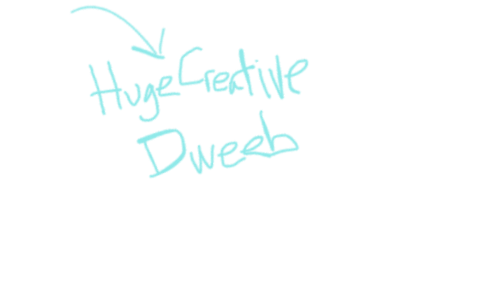 Huge Creative
Dweeb